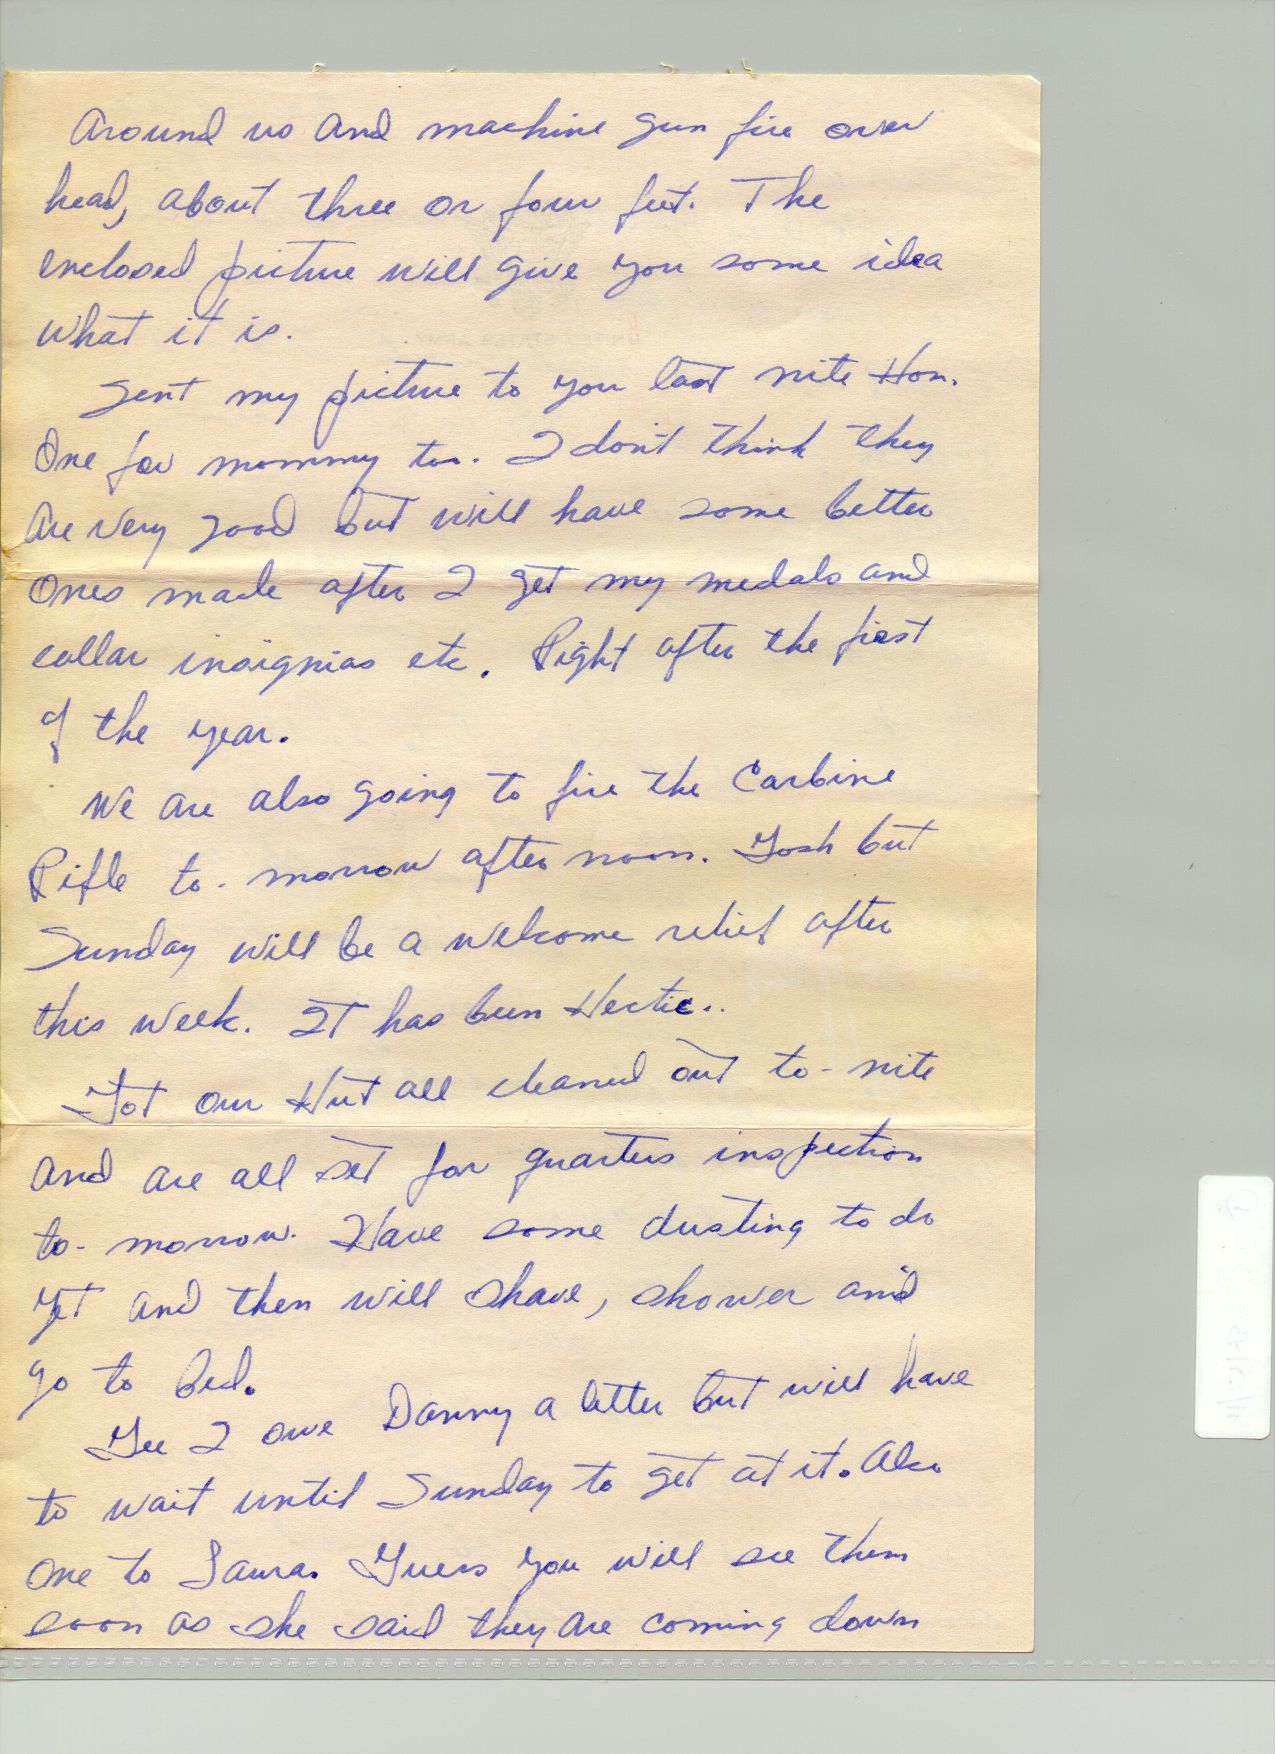 Around us and machine gun fire over
head, about three or four feet. The
enclosed picture will give you some idea
what it is.
Sent my picture to you last nite Hon.
One for mommy too. I don't think they
are very good but will have some better
ones made after I get my medals and
collar insignias etc. Right after the first
of the year.
We are also going to fire the Carbine
Rifle to-morrow after noon. Gosh but
Sunday will be a welcome relief after
this week. It has been Hectic..
Got our Hut all cleaned out to-nite
and are all set for quarters inspection
to-morrow. Have some dusting to do
yet and then will shave, shower and
go to bed.
Gee I owe Danny a letter but will have
to wait until Sunday to get at it. Also
one to Laura. Guess you will see them
soon as she said they are coming down